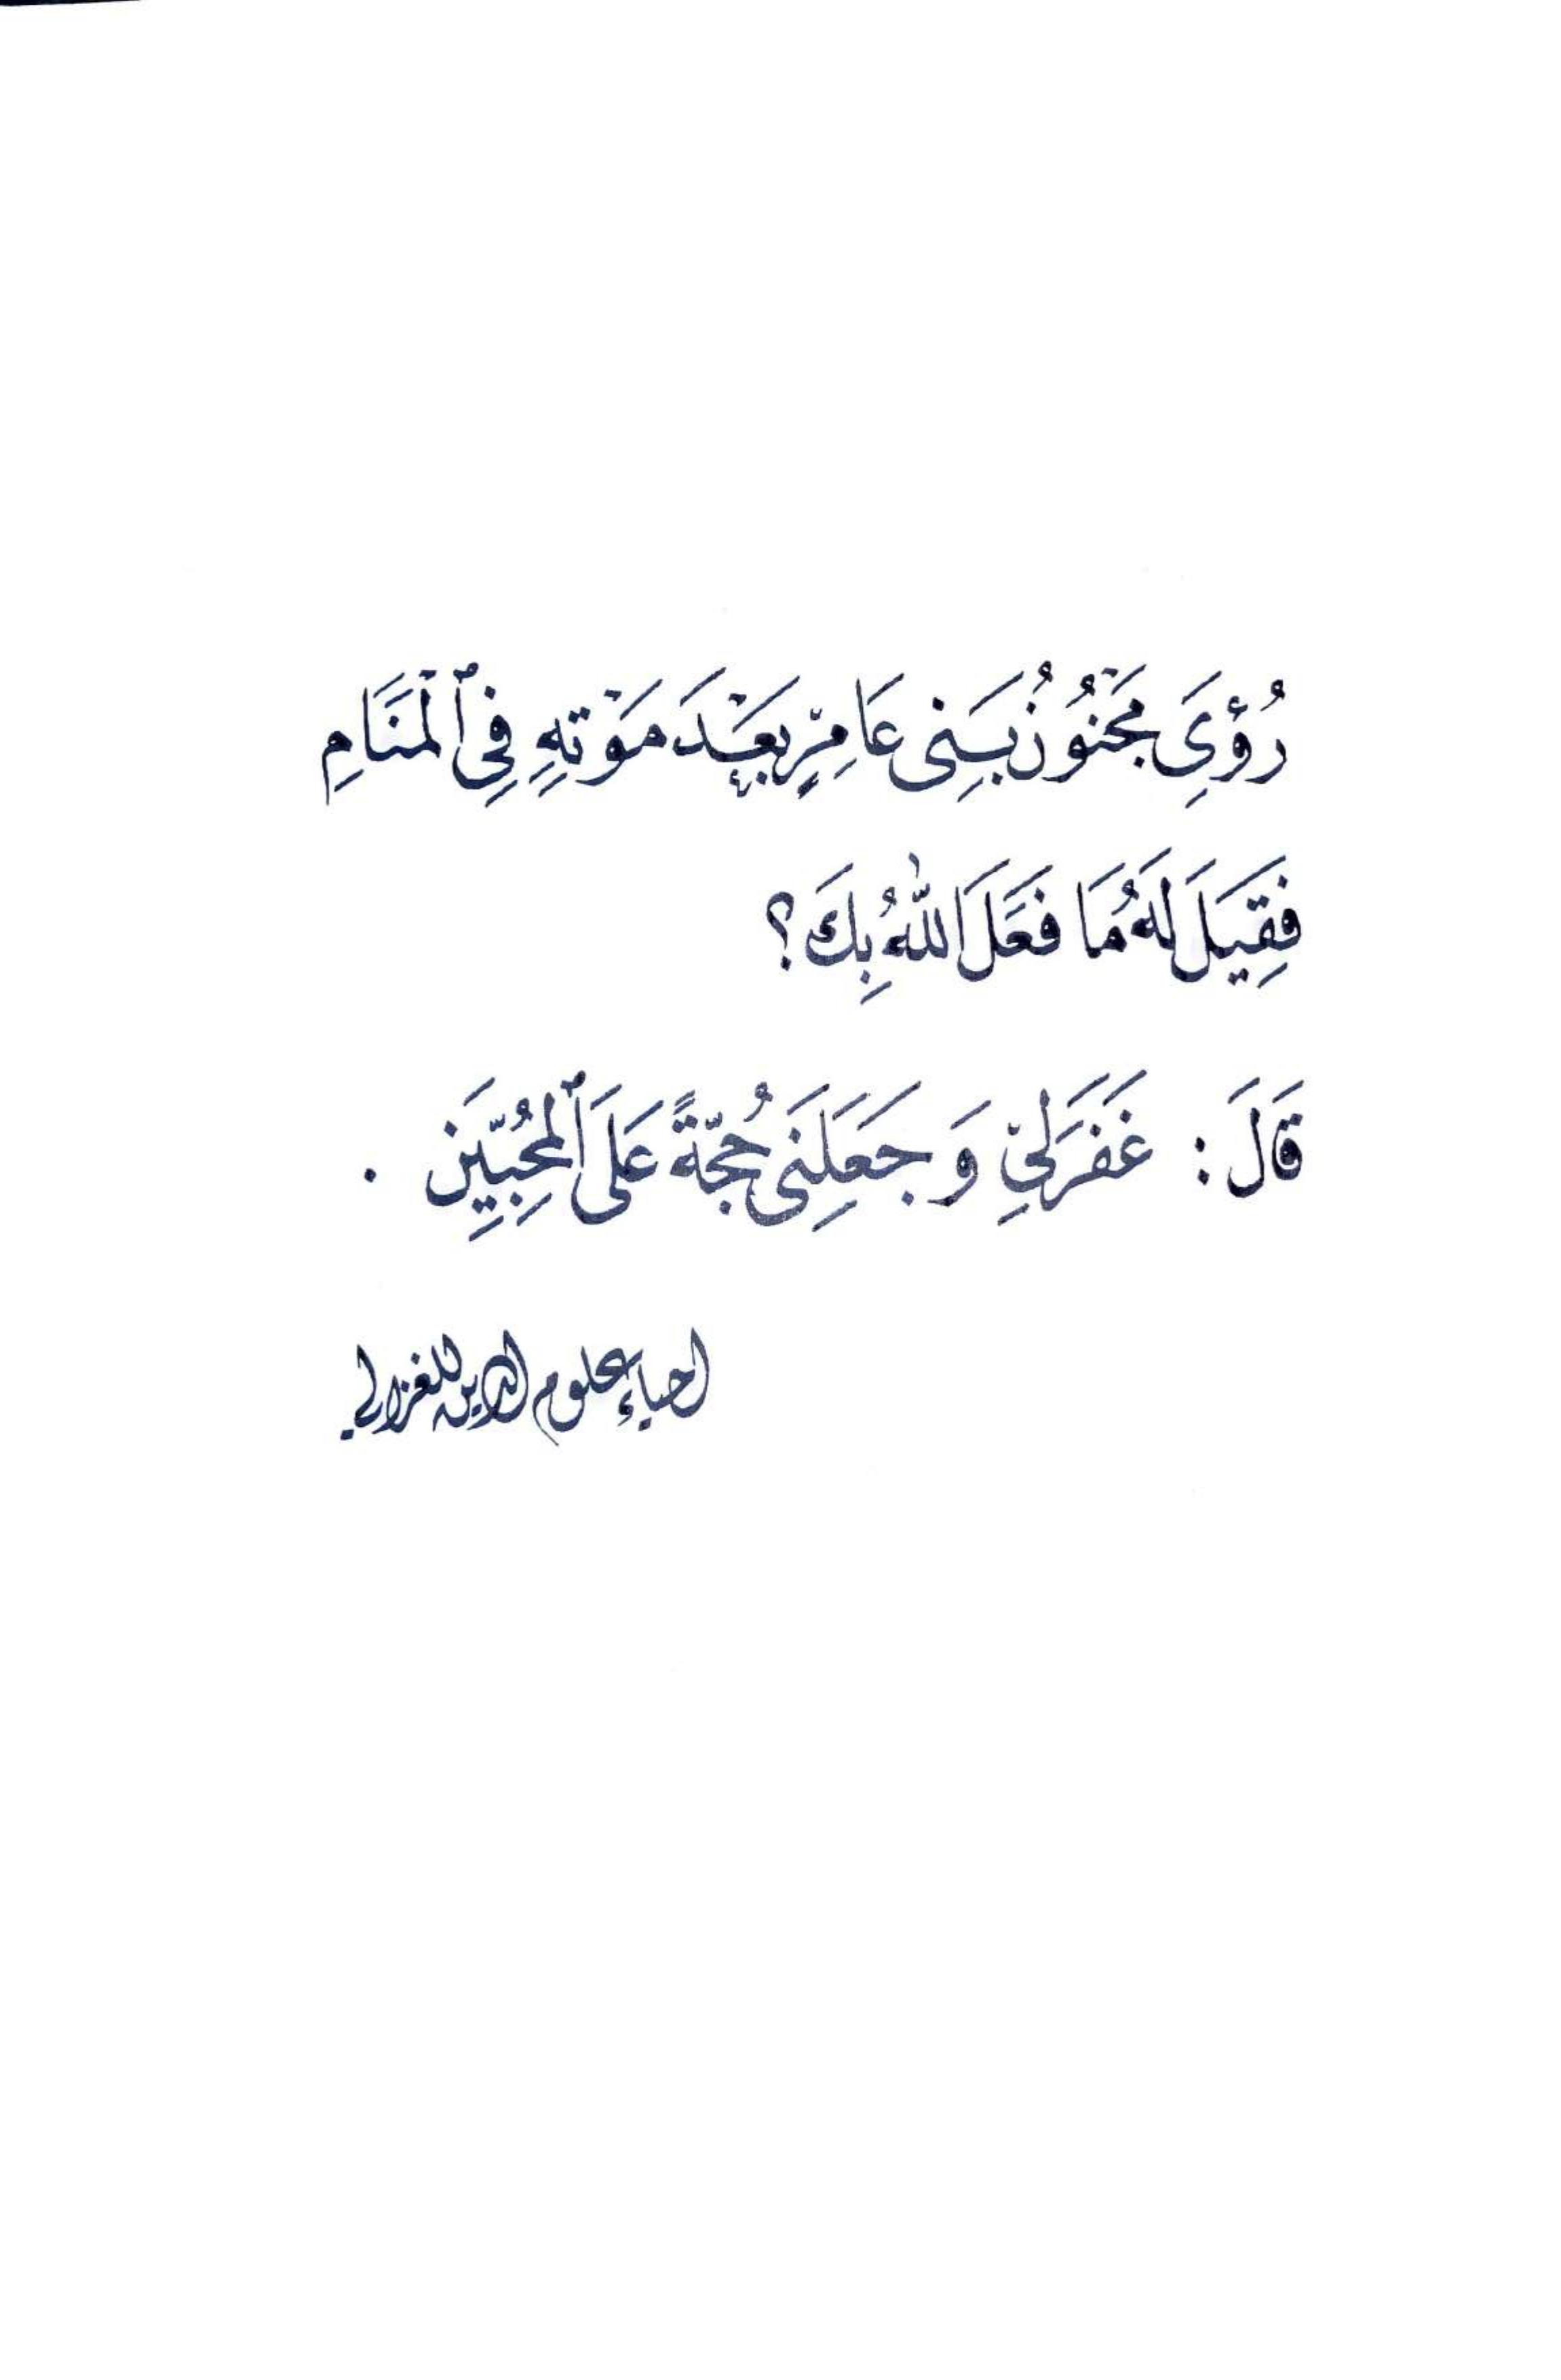 رُؤِىَ مَجْنُوْنُ بَنِى عَامِرٍ بَعْدَ مَوْتِهِ فِى ٱلْمَنَامِ
فَقِيَلَ لَهُ مَا فَعَلَ اللّٰهُ بِكَ؟
قَالَ: غَفَرَلِيْ وَ جَعَلَنِى حُجَّةً عَلَى ٱلْمُحِبِّيِنَ .
احياء علوم الدين للغزالي